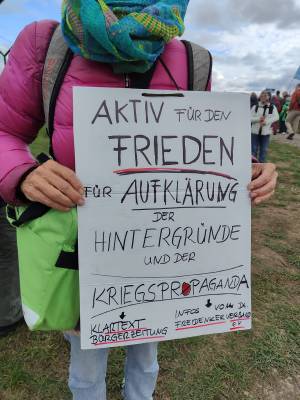 AKTIV FÜR DEN
FRIEDEN
FÜR AUFKLÄRUNG
DER
HINTERGRÜNDE
UND DER
KRIEGSPROPAGANDA
KLARTEXT INFOS VOM DT.
BÜRGERZEITUNG FREIDENKERVERBAND
E.V.